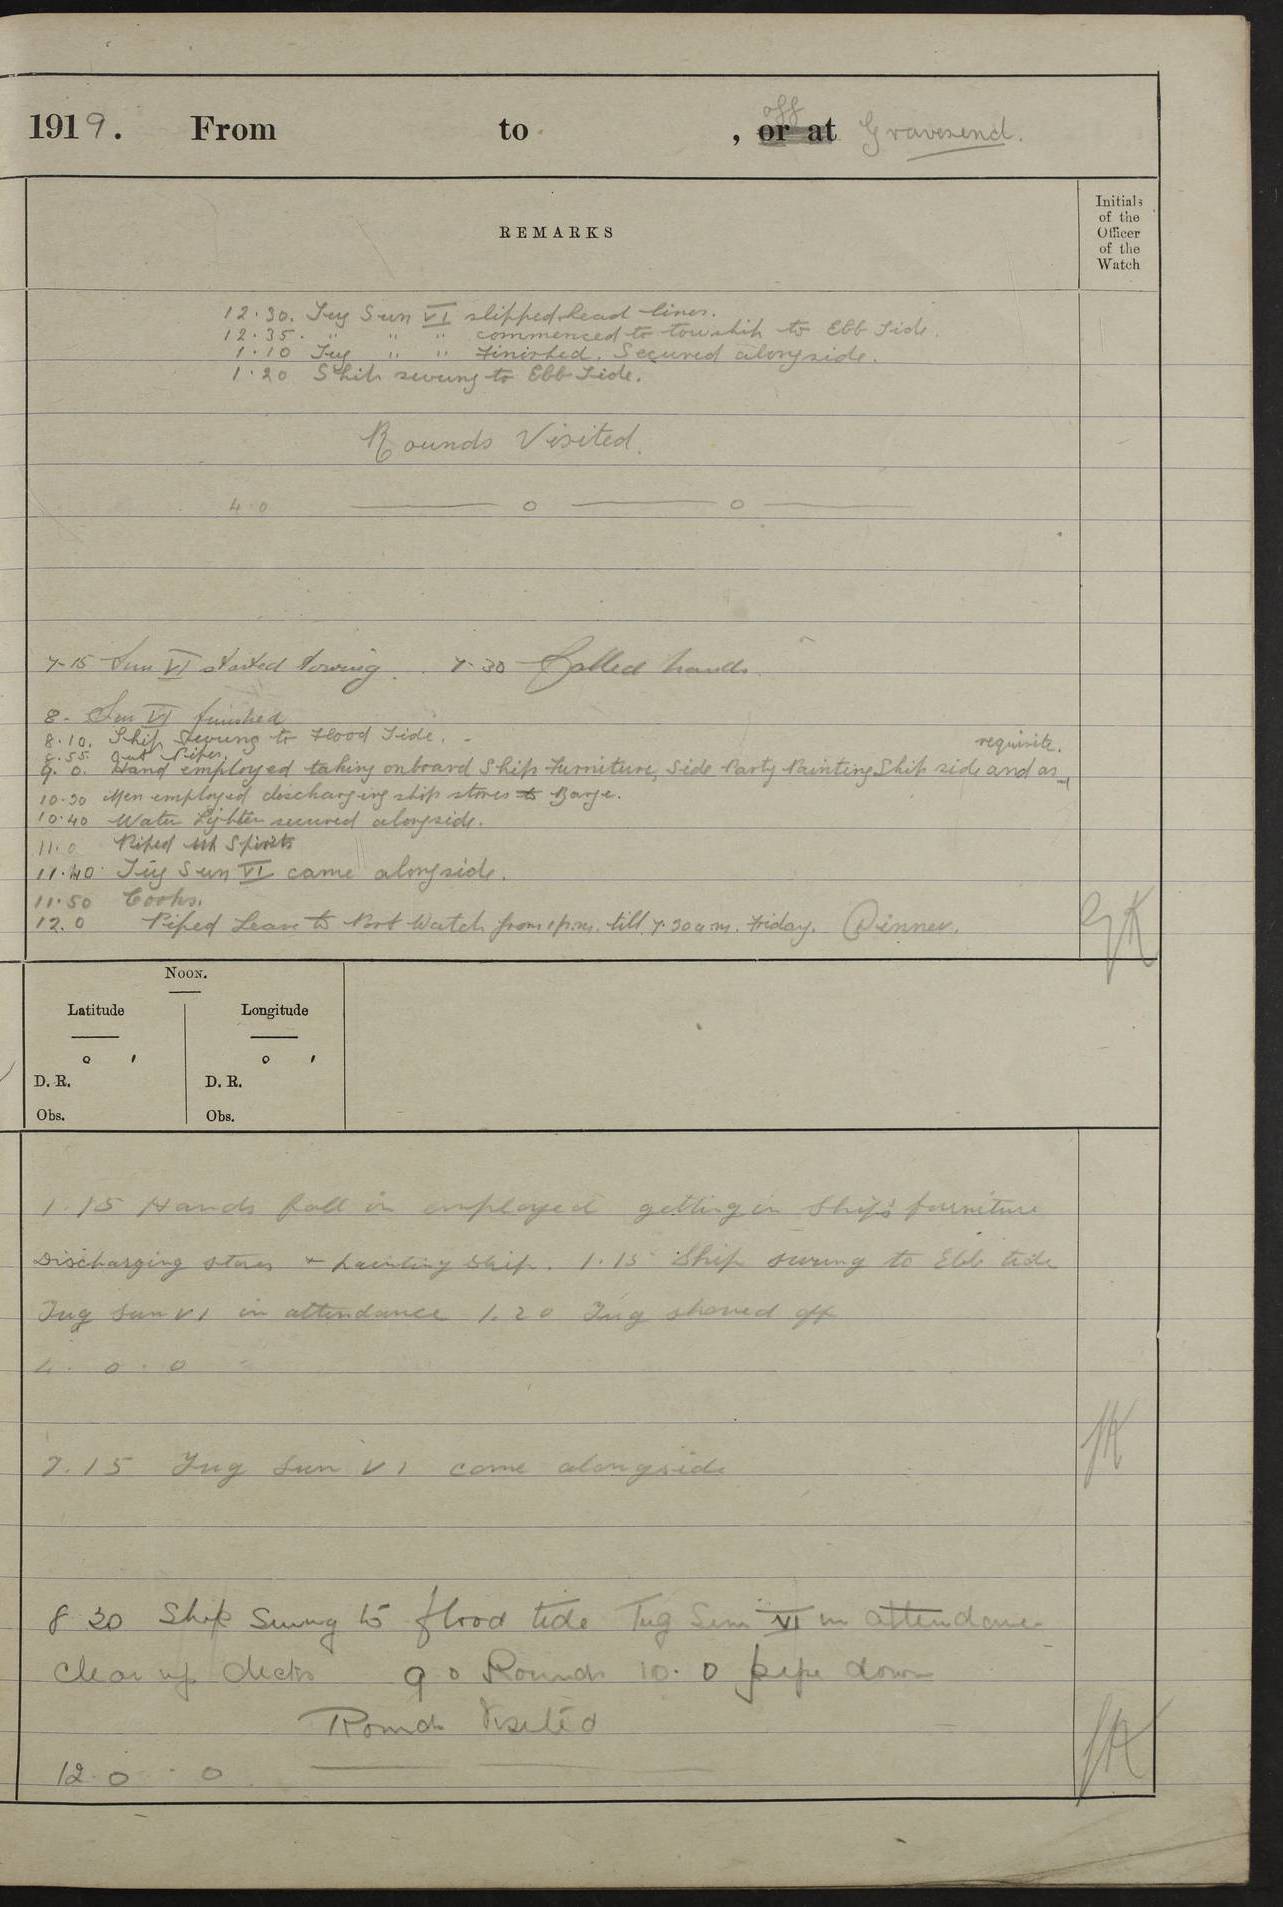 1919. From to , ~~or at~~ off Gravesend.
REMARKS
Initials
of the
Officer
of the
Watch
12.30. Tug Sun VI slipped head lines.
12.35. " " " commenced to tow ship to Ebb Tide.
1.10 Tug " " Finished. Secured alongside.
1.20 Ship swung to Ebb Tide.
Rounds Visited.
4.0 — o — o —
7-15 Sun VI started towing. 7.30 Called hands.
8 - Sun VI finished
8.10. Ship swung to Flood Tide. -
8.55. Out Pipes.
9.0. Hand employed taking onboard Ships Furniture, Side Party Painting Ship side and as requisite.
10.30 Men employed discharging ship stores to Barge.
10.40 Water Lighter secured alongside.
11.0 Piped Up Spirits
11.40 Tug Sun VI came alongside.
11.50 Cooks.
12.0 Piped Leave to Port Watch from 1 p.m. till 7.30 a.m. Friday. Dinner.
NOON.
Latitude Longitude
° ′ ° ′
D. R. D. R.
Obs. Obs.
1.15 Hands fall in employed getting in Ship's furniture
Discharging stores + painting ship. 1.15 Ship swung to Ebb tide
Tug Sun VI in attendance 1.20 Tug shoved off
4.0.0
7.15 Tug Sun VI came alongside
8 30 Ship Swung to flood tide Tug Sun VI in attendance
Clear up decks 9 0 Rounds 10.0 pipe down
Rounds Visited
12.0 . 0